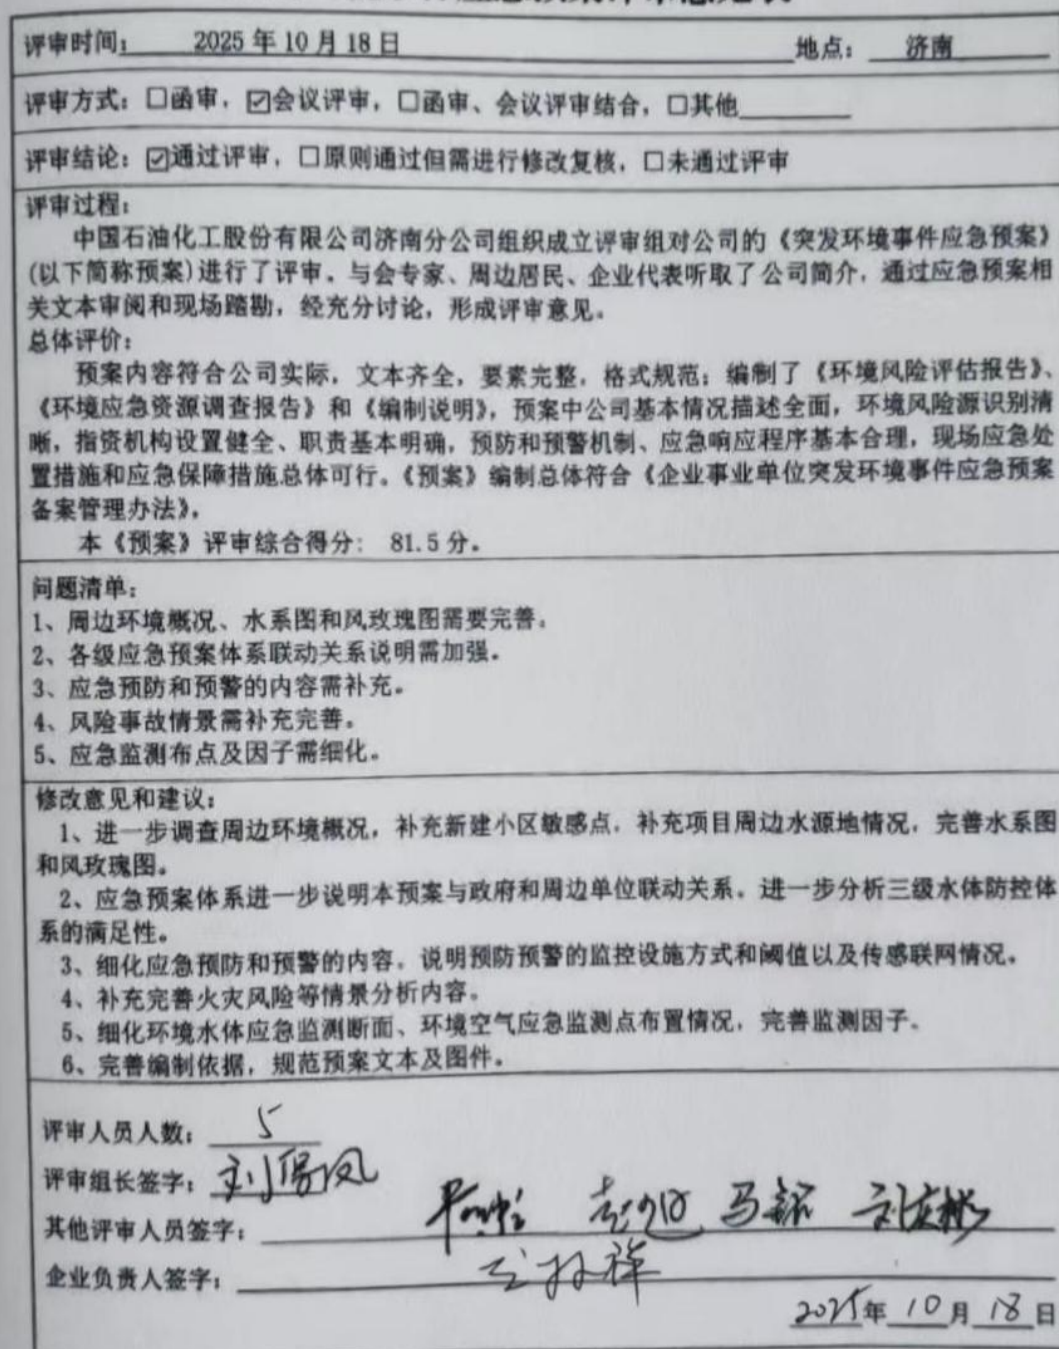 评审时间： 2025 年 10 月 18 日 地点： 济南
评审方式：☐函审，☑会议评审，☐函审、会议评审结合，☐其他
评审结论：☑通过评审，☐原则通过但需进行修改复核，☐未通过评审
评审过程：
中国石油化工股份有限公司济南分公司组织成立评审组对公司的《突发环境事件应急预案》
(以下简称预案)进行了评审。与会专家、周边居民、企业代表听取了公司简介，通过应急预案相
关文本审阅和现场踏勘，经充分讨论，形成评审意见。
总体评价：
预案内容符合公司实际，文本齐全，要素完整，格式规范；编制了《环境风险评估报告》、
《环境应急资源调查报告》和《编制说明》，预案中公司基本情况描述全面，环境风险源识别清
晰，指资机构设置健全、职责基本明确，预防和预警机制、应急响应程序基本合理，现场应急处
置措施和应急保障措施总体可行。《预案》编制总体符合《企业事业单位突发环境事件应急预案
备案管理办法》。
本《预案》评审综合得分： 81.5 分。
问题清单：
1、周边环境概况、水系图和风玫瑰图需要完善。
2、各级应急预案体系联动关系说明需加强。
3、应急预防和预警的内容需补充。
4、风险事故情景需补充完善。
5、应急监测布点及因子需细化。
修改意见和建议：
1、进一步调查周边环境概况，补充新建小区敏感点，补充项目周边水源地情况，完善水系图
和风玫瑰图。
2、应急预案体系进一步说明本预案与政府和周边单位联动关系。进一步分析三级水体防控体
系的满足性。
3、细化应急预防和预警的内容。说明预防预警的监控设施方式和阈值以及传感联网情况。
4、补充完善火灾风险等情景分析内容。
5、细化环境水体应急监测断面、环境空气应急监测点布置情况，完善监测因子。
6、完善编制依据，规范预案文本及图件。
评审人员人数： 5
评审组长签字：
其他评审人员签字： 马
企业负责人签字：
2025年 10 月 18 日